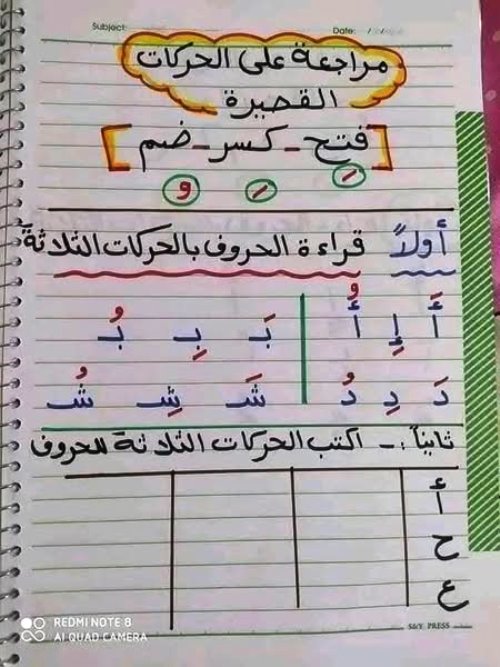 Subject: Date: / /
مراجعة على الحركات
القصيرة
[فتح - كسر - ضم]
َ ِ ُ
أولاً قراءة الحروف بالحركات الثلاثة
أَ إِ أُ بَ بِ بُ
دَ دِ دُ شَ شِ شُ
ثانياً :- اكتب الحركات الثلاثة للحروف
أ
ح
ع
S&Y PRESS
REDMI NOTE 8
AI QUAD CAMERA